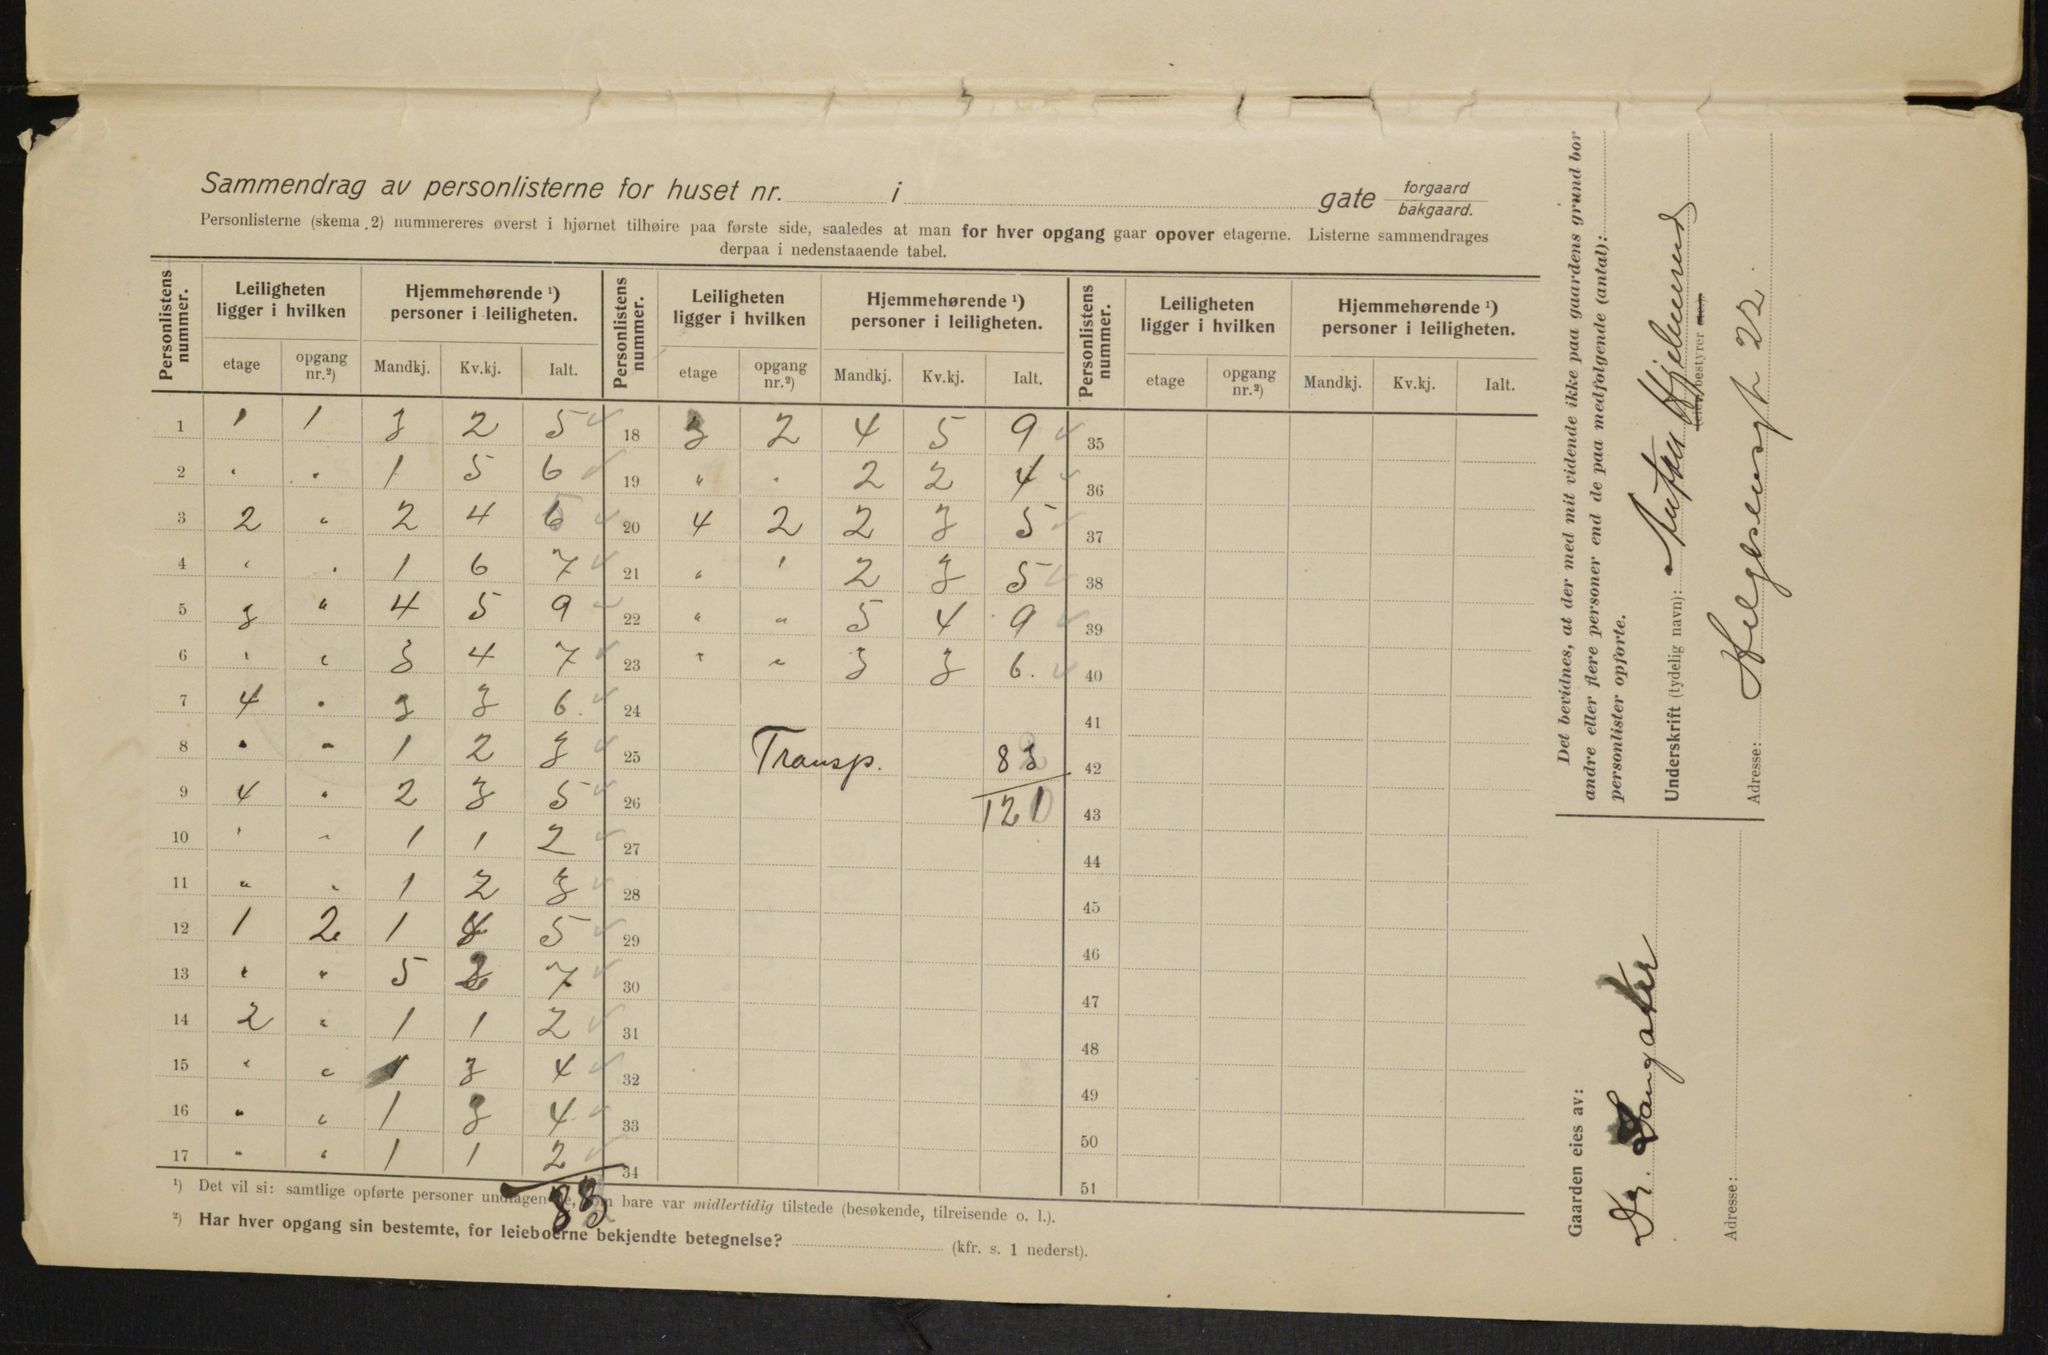 Sammendrag av personlisterne for huset nr. i gate forgaard bakgaard.
Personlisterne (skema 2) nummereres øverst i hjørnet tilhøire paa første side, saaledes at man for hver opgang gaar opover etagerne. Listerne sammendrages
derpaa i nedenstaaende tabel.
Personlistens nummer. Leiligheten ligger i hvilken Hjemmehørende ¹) personer i leiligheten. Personlistens nummer. Leiligheten ligger i hvilken Hjemmehørende ¹) personer i leiligheten. Personlistens nummer. Leiligheten ligger i hvilken Hjemmehørende ¹) personer i leiligheten.
etage opgang nr.²) Mandkj. Kv.kj. Ialt. etage opgang nr.²) Mandkj. Kv.kj. Ialt. etage opgang nr.²) Mandkj. Kv.kj. Ialt.
1 1 1 3 2 5 18 3 2 4 5 9 35
2 " " 1 5 6 19 " " 2 2 4 36
3 2 " 2 4 6 20 4 2 2 3 5 37
4 " " 1 6 7 21 " ' 2 3 5 38
5 3 " 4 5 9 22 " " 5 4 9 39
6 " " 3 4 7 23 " " 3 3 6. 40
7 4 " 3 3 6. 24 41
8 " " 1 2 3 25 Transp. 83 42
9 4 " 2 3 5 26 121 43
10 " " 1 1 2 27 44
11 " " 1 2 3 28 45
12 1 2 1 4 5 29 46
13 " " 5 2 7 30 47
14 2 " 1 1 2 31 48
15 " " 1 3 4 32 49
16 " " 1 3 4 33 50
17 " " 1 1 2 34 51
83
¹) Det vil si: samtlige opførte personer undtagen de, som bare var midlertidig tilstede (besøkende, tilreisende o. l.).
²) Har hver opgang sin bestemte, for leieboerne bekjendte betegnelse? (kfr. s. 1 nederst).
Det bevidnes, at der med mit vidende ikke paa gaardens grund bor
andre eller flere personer end de paa medfølgende (antal):
personlister opførte.
Underskrift (tydelig navn): Anton Hjelmerud
bestyrer
Adresse: Helgesensgt 22.
Gaarden eies av:
Dr. Langaker
Adresse: